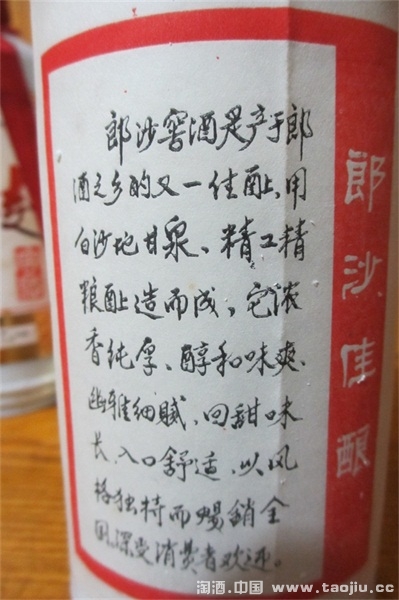 郎沙窖酒是产于郎
酒之乡的又一佳酿、用
白沙地甘泉、精工精
粮酿造而成，它浓
香纯厚、醇和味爽
幽雅细腻，回甜味
长、入口舒适，以风
格独特而畅销全
国、深受消费者欢迎。
郎沙佳酿
淘酒.中国 www.taojiu.cc